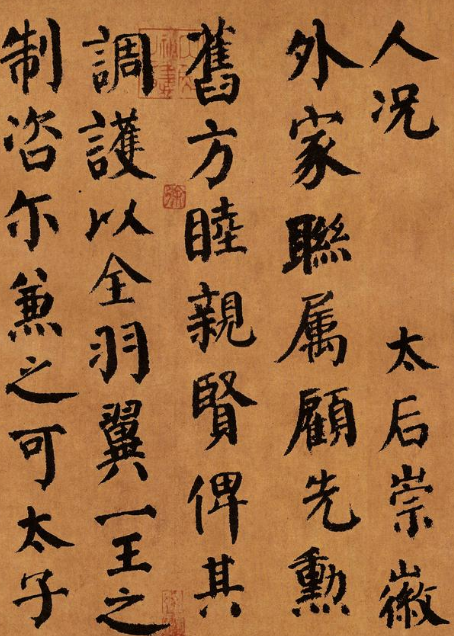 人况 太后崇徽
外家聯属顧先勳
舊方睦親賢俾其
調護以全羽翼一王之
制咨尓兼之可太子